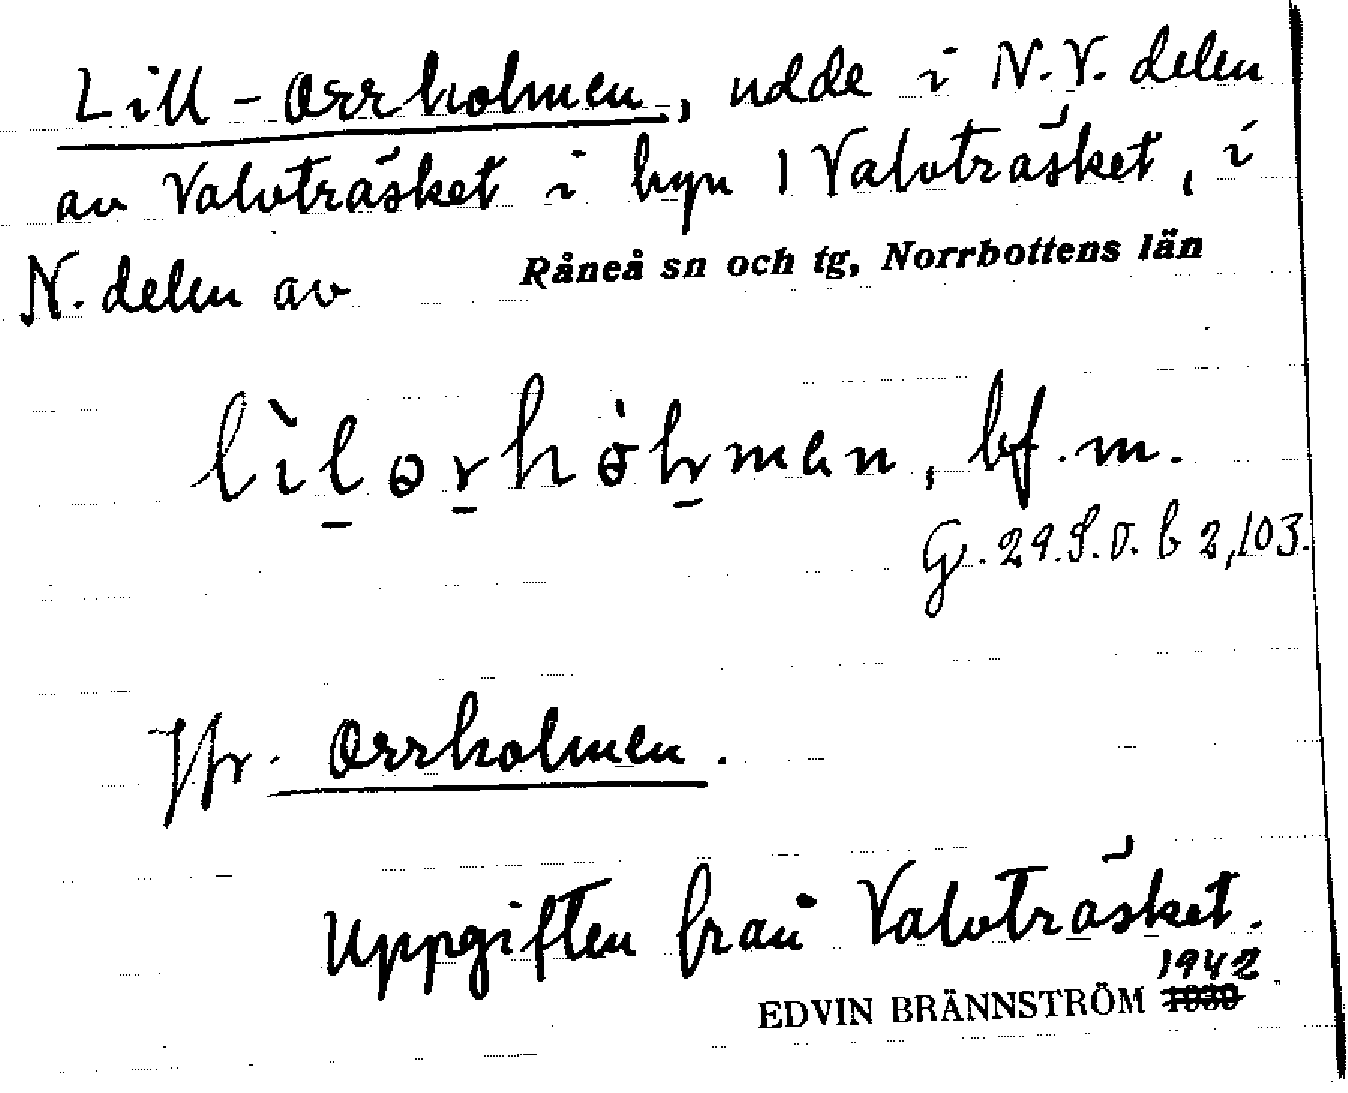 Lill-Orrholmen, udde i N.V. delen
av Valvträsket i byn 1 Valvträsket, i
N. delen av Råneå sn och tg, Norrbottens län
bf. m.
G. 29.S.V. b 2,103.
Jfr. Orrholmen.
Uppgiften från Valvträsket.
1942
EDVIN BRÄNNSTRÖM 1930